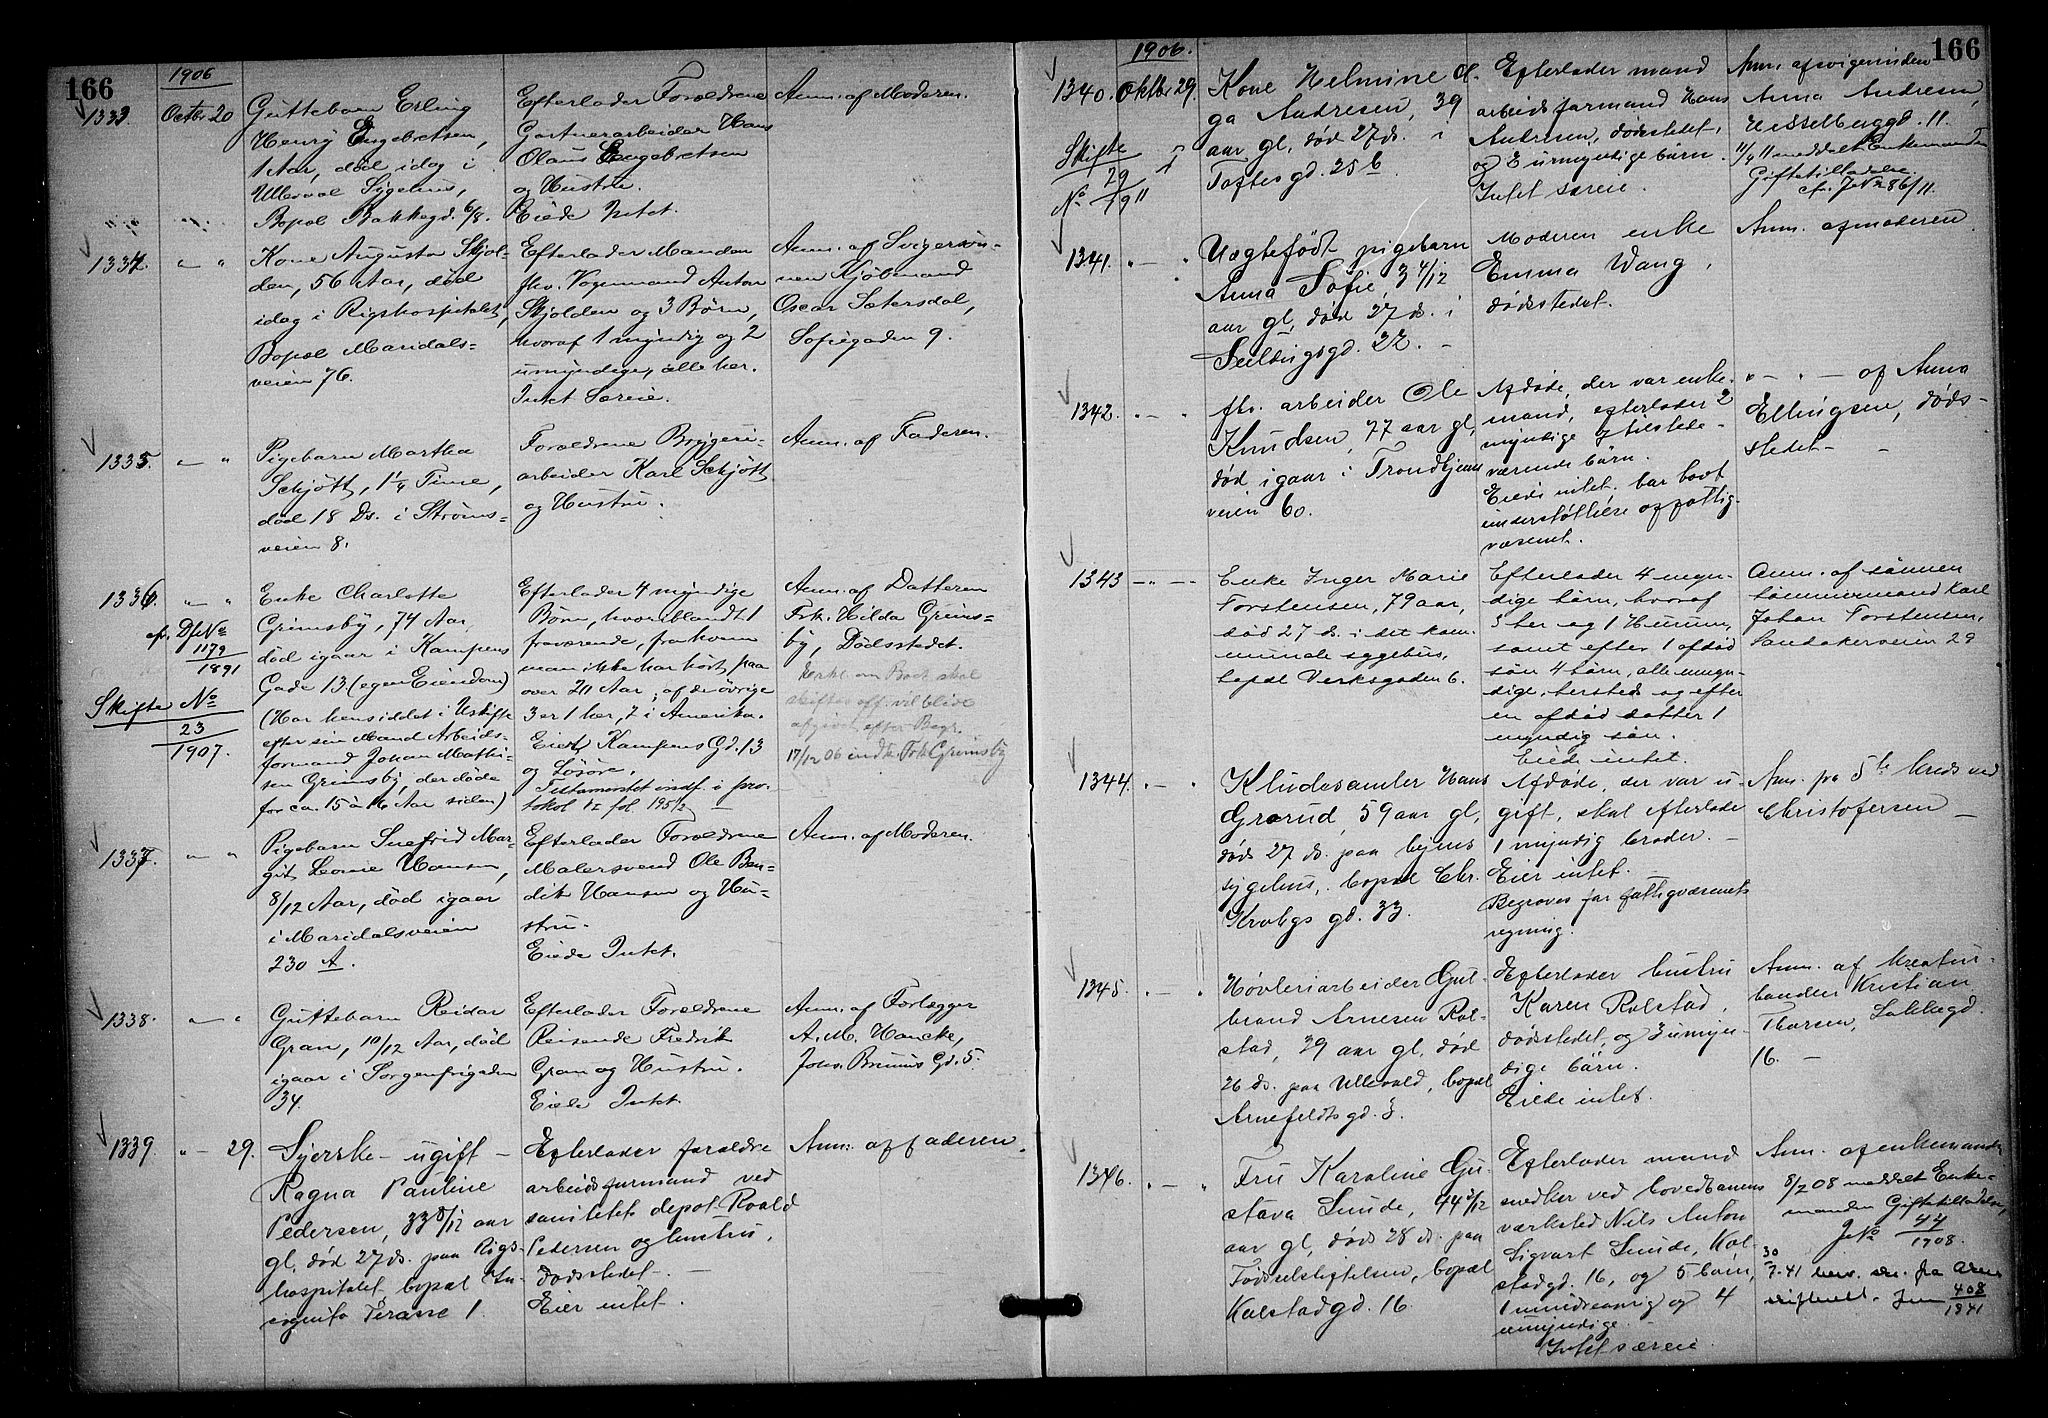 166
1906
1333. Octbr 20
Guttebarn Erling
Henry Engebretsen,
1 Aar, død idag i
Ullevaal Sygehus,
Bopæl Bakkegd. 6/8.
Efterlader Forældrene
Gartnerarbeider Hans
Olaus Engebretsen
og Hustru.
Eiede Intet.
Anm. af Moderen.
1334. " — "
Kone Augusta Skjol-
den, 56 Aar, død
idag i Rigshospitalet,
Bopæl Maridals-
veien 76.
Efterlader Manden
fhv. Vognmand Anton
Skjolden og 3 Børn,
hvoraf 1 myndig og 2
umyndige, alle her.
Intet Særeie.
Anm. af Svigersøn-
nen Kjøbmand
Oscar Sætersdal,
Sofiegaden 9.
1335. " — "
Pigebarn Martha
Schjøtt, 1 1/4 Time,
død 18 Ds. i Strøms-
veien 8.
Forældrene Bryggeri-
arbeider Karl Schjøtt
og Hustru.
Anm. af Faderen.
1336. " — "
cfr. Df No
1179
1891
Skifte No
23
1907.
Enke Charlotte
Grimsby, 74 Aar,
død igaar i Kampens
Gade 13 (egen Eiendom)
(Har hensiddet i Uskifte
efter sin Mand Arbeids-
formand Johan Mathi-
sen Grimsby, der døde
for ca. 15 à 16 Aar siden)
Efterlader 4 myndige
Børn, hvoriblandt 1
fraværende, fra hvem
man ikke har hørt paa
over 20 Aar; af de øvrige
3 er 1 her, 2 i Amerika.
Eiet Kampens Gd. 13
og Løsøre.
Testamentet indf. i pro-
tokol VI fol. 195/2 —
Anm. af Datteren
Frk. Hilda Grims-
by, Dødsstedet.
Erkl. om Boet skal
skiftes off. vil blive
afgivet efter Begr.
17/12 06 indk. Frk. Grimsby
1337. " — "
Pigebarn Snefrid Mar-
git Leonie Hansen,
8/12 Aar, død igaar
i Maridalsveien
230 A.
Efterlader Forældrene
Malersvend Ole Ben-
dik Hansen og Hu-
stru.
Eiede Intet.
Anm. af Moderen.
1338. " — "
Guttebarn Reidar
Gran, 10/12 Aar, død
igaar i Sorgenfrigaden
34.
Efterlader Forældrene
Reisende Fredrik
Gran og Hustru.
Eiede Intet.
Anm. af Forlægger
A. M. Hancke,
Johs. Bruuns Gd. 5.
1339. " — 29.
Syerske — ugift —
Ragna Pauline
Pedersen, 33 8/12 aar
gl, død 27 ds. paa Rigs-
hospitalet, bopæl In-
cognito Terasse 1.
Efterlader forældre
arbeidsformand ved
sanitets depot Roald
Pedersen og hustru,
dødsstedet. —
Eier intet.
Anm: af faderen.
166
1906.
1340. Oktbr 29.
Skifte
No 29
1911
Kone Helmine Ol-
ga Andresen, 39
aar gl, død 27 ds. i
Toftesgd. 25 b
Efterlader mand
arbeidsformand Hans
Andresen, dødsstedet,
og 2 umyndige børn.
Intet særeie.
Anm. af svigerinden
Anna Andresen,
Hesselberggd. 11.
11/9 11 meddelt Enkemanden
Giftetilladelse
cfr. J.No 286/11.
1341. " — "
Uægtefødt pigebarn
Anna Sofie, 3 4/12
aar gl, død 27 ds. i
Seildugsgd. 22. —
Moderen enke
Emma Wang,
dødsstedet.
Anm. af moderen
1342. " — "
fhv. arbeider Ole
Knudsen, 77 aar gl,
død igaar i Trondhjems
veien 60.
Afdøde, der var enke-
mand, efterlader 2
myndige tilstede-
værende børn.
Eiede intet, har havt
understøttelse af fattig-
væsenet.
" — " — af Anna
Ellingsen, døds-
stedet —
1343 — " —
Enke Inger Marie
Torstensen, 79 aar,
død 27 ds. i det kom-
munale sygehus,
bopæl Verksgaden 6.
Efterlader 4 myn-
dige børn, hvoraf
3 her og 1 Hurum,
samt efter 1 afdød
søn 4 børn, alle myn-
dige, hersteds og efter
en afdød datter 1
myndig søn.
Eiede intet.
Anm. af sønnen
tømmermand Karl
Johan Torstensen,
Sandakerveien 29
1344. " — "
Kludesamler Hans
Grorud, 59 aar gl,
død 27 ds. paa byens
sygehus, bopæl Chr.
Krohgs gd. 33.
Afdøde, der var u-
gift, skal efterlade
1 myndig broder. —
Eier intet.
Begraves for fattigvæsenets
regning.
Anm. fra 5te kreds ved
Christofersen —
1345. " — "
Høvleriarbeider Gul-
brand Arnesen Rol-
stad, 39 aar gl, død
26 ds. paa Ullevold, bopæl
Arnefeldts gd. 3.
Efterlader hustru
Karen Rolstad,
dødsstedet, og 3 umyn-
dige børn.
Eiede intet.
Anm. af kreatur-
handler Kristian
Thorsen, Lakkegd.
16. —
1346. " — "
Fru Karoline Gu-
stava Lunde, 44 3/12
aar gl, død 28 ds. paa
Fødselsstiftelsen, bopæl
Kalstadgd. 16
Efterlader mand
snedker ved hovedbanens
værksted Nils Anton
Sigvart Lunde, Kal-
stadgd. 16, og 5 børn,
1 mindreaarig og 4
umyndige. —
Intet særeie.
Anm. af enkemanden
8/2 08 meddelt Enke-
manden Giftetilladelse,
J.No 44
1908.
30
7.41
408
1941